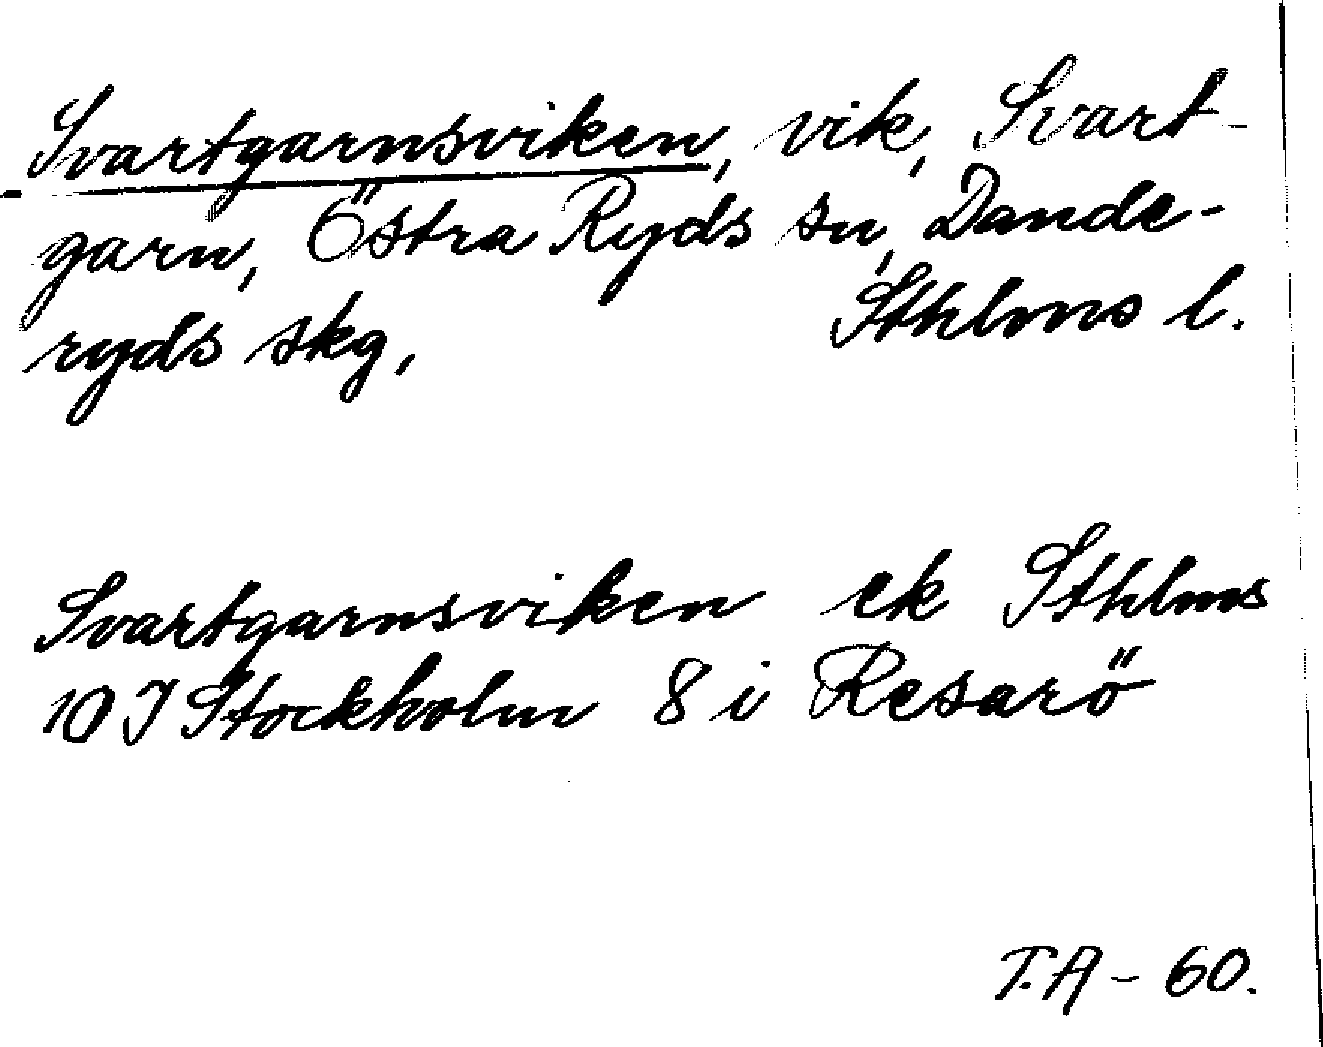 Svartgarnsviken, vik, Svart-
garn, Östra Ryds sn, Dande-
ryds skg, Sthlms l.
Svartgarnsviken ek Sthlms
10 J Stockholm 8 i Resarö
T.A - 60.